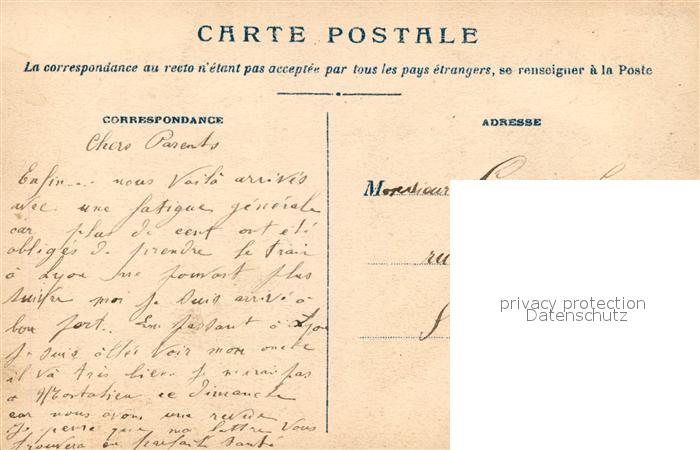 CARTE POSTALE
La correspondance au recto n'étant pas acceptée par tous les pays étrangers, se renseigner à la Poste
CORRESPONDANCE
Chers Parents
Enfin... nous voilà arrivés
avec une fatigue générale
car plus de cent ont été
obligés de prendre le train
à Lyon ne pouvant plus
suivre moi je suis arrivé à
bon port. En passant à Lyon
je suis allée voir mon oncle
il va très bien je n'irai pas
à ce Dimanche
car nous avons une revue
Je pense que ma lettre vous
trouvera en parfaite santé
ADRESSE
Monsieur
ru
privacy protection
Datenschutz